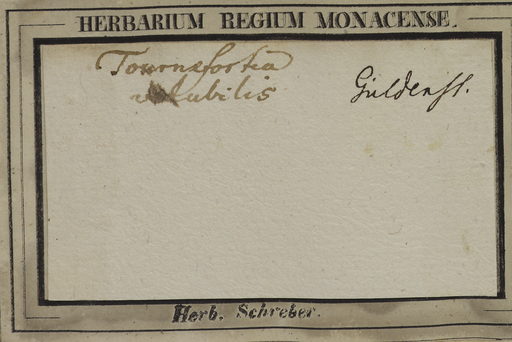 HERBARIUM REGIUM MONACENSE.
Tournefortia
volubilis
Güldenst.
Herb. Schreber.